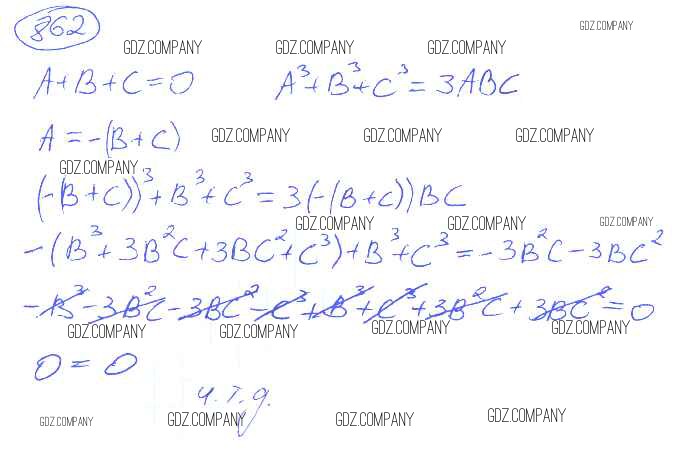 862
GDZ.COMPANY
GDZ.COMPANY GDZ.COMPANY GDZ.COMPANY
A+B+C=0 A³+B³+C³=3ABC
A=-(B+C) GDZ.COMPANY GDZ.COMPANY GDZ.COMPANY
GDZ.COMPANY
(-(B+C))³+B³+C³=3(-(B+C))BC
GDZ.COMPANY GDZ.COMPANY GDZ.COMPANY
-(B³+3B²C+3BC²+C³)+B³+C³=-3B²C-3BC²
-B³-3B²C-3BC²-C³+B³+C³+3B²C+3BC²=0
GDZ.COMPANY GDZ.COMPANY GDZ.COMPANY GDZ.COMPANY
0=0
ч.т.д.
GDZ.COMPANY GDZ.COMPANY GDZ.COMPANY GDZ.COMPANY